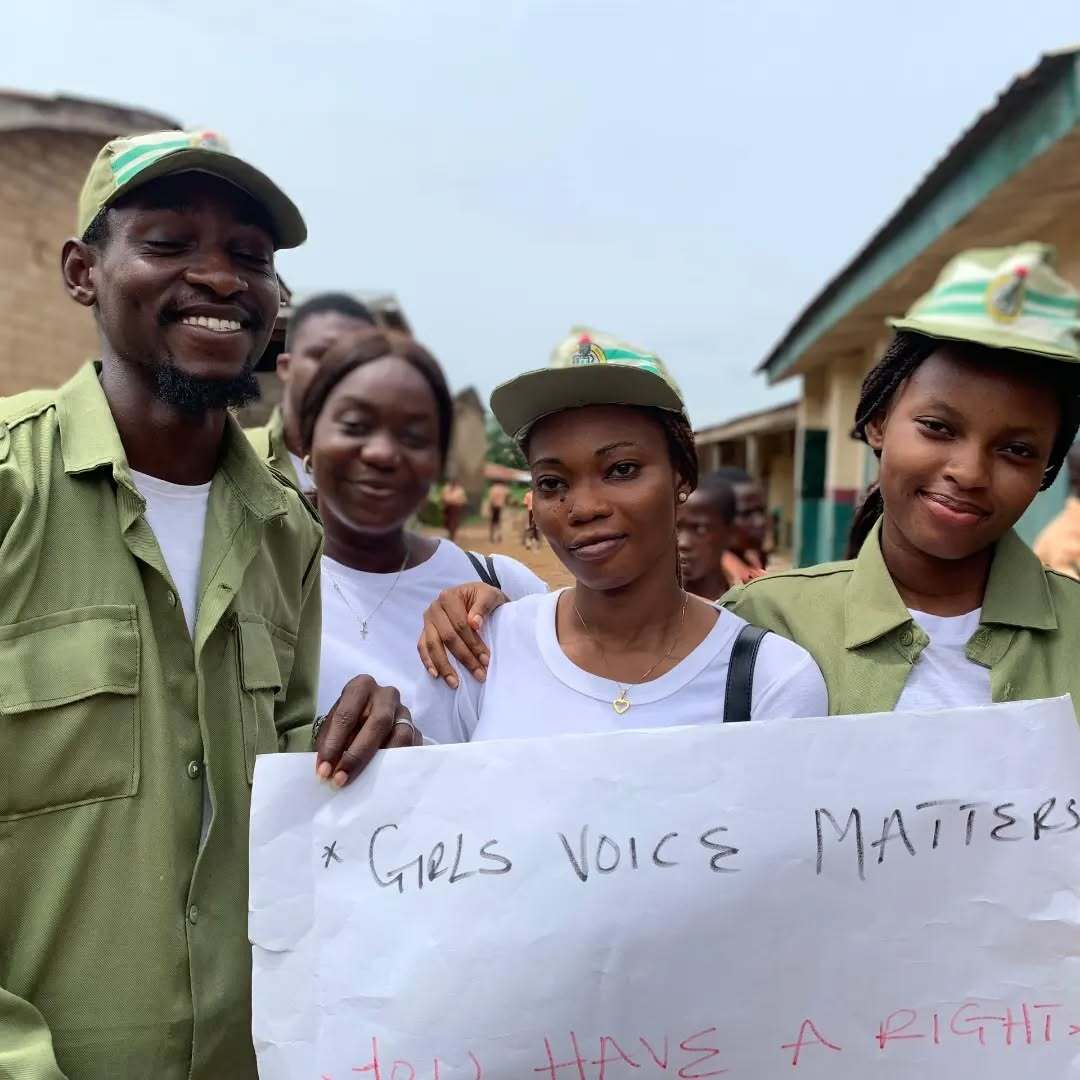 * GIRLS VOICE MATTERS
YOU HAVE A RIGHT